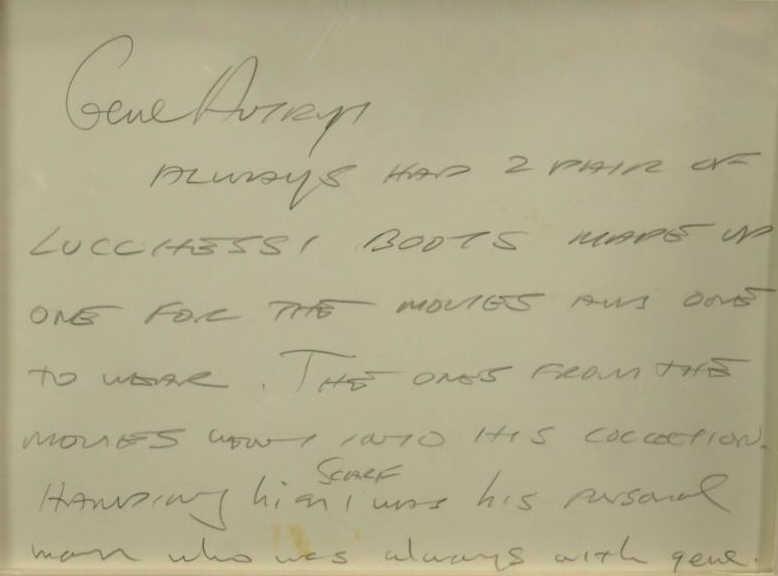 Gene Autry
ALWAYS HAD 2 PAIR OF
LUCCHESSI BOOTS MADE UP
ONE FOR THE MOVIES AND ONE
TO WEAR. THE ONES FROM THE
MOVIES WENT INTO HIS COLLECTION.
SCARF
HANDING him I was his personal
man who was always with gene.